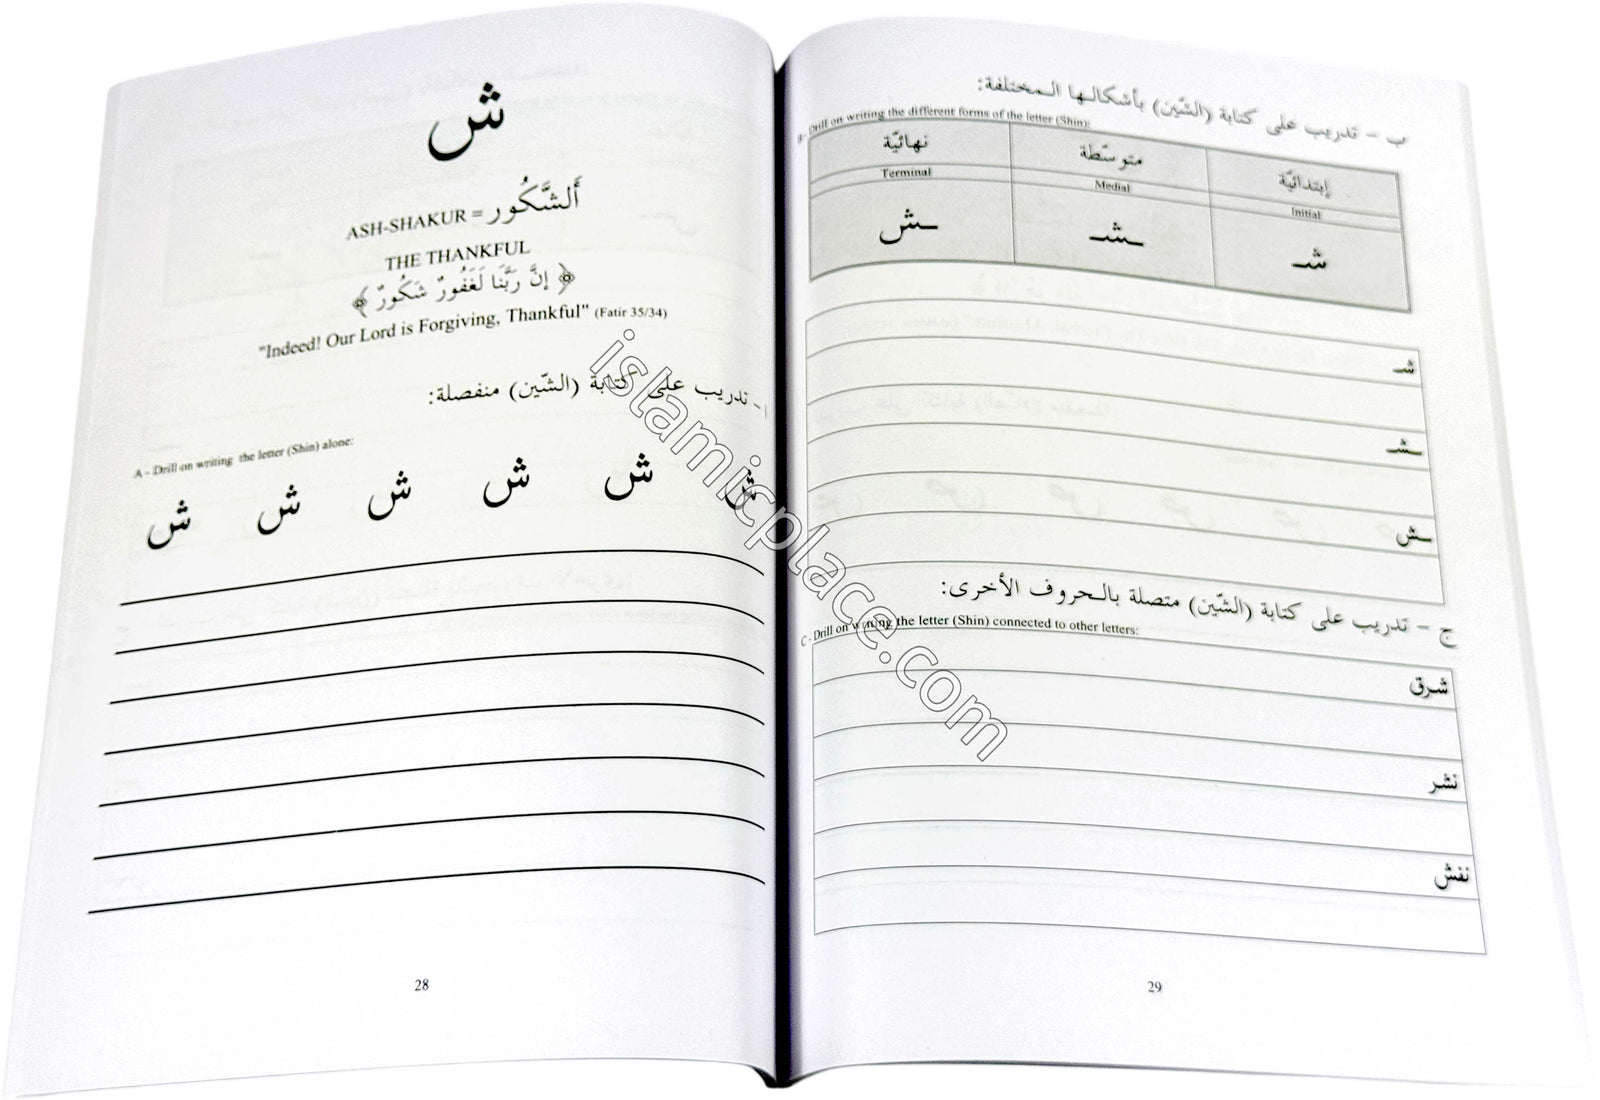 ش
ASH-SHAKUR = أَلشَّكُور
THE THANKFUL
﴿ إِنَّ رَبَّنَا لَغَفُورٌ شَكُورٌ ﴾
"Indeed! Our Lord is Forgiving, Thankful" (Fatir 35/34)
ا - تدريب على كتابة (الشّين) منفصلة:
A - Drill on writing the letter (Shin) alone:
ش ش ش ش ش ش
28
ب - تدريب على كتابة (الشّين) بأشكالها المختلفة:
B - Drill on writing the different forms of the letter (Shin):
إبتدائيّة متوسّطة نهائيّة
Initial Medial Terminal
شـ ـشـ ـش
شـ
ـشـ
ـش
ج - تدريب على كتابة (الشّين) متصلة بالحروف الأخرى:
C - Drill on writing the letter (Shin) connected to other letters:
شرق
نشر
نفش
29
islamicplace.com